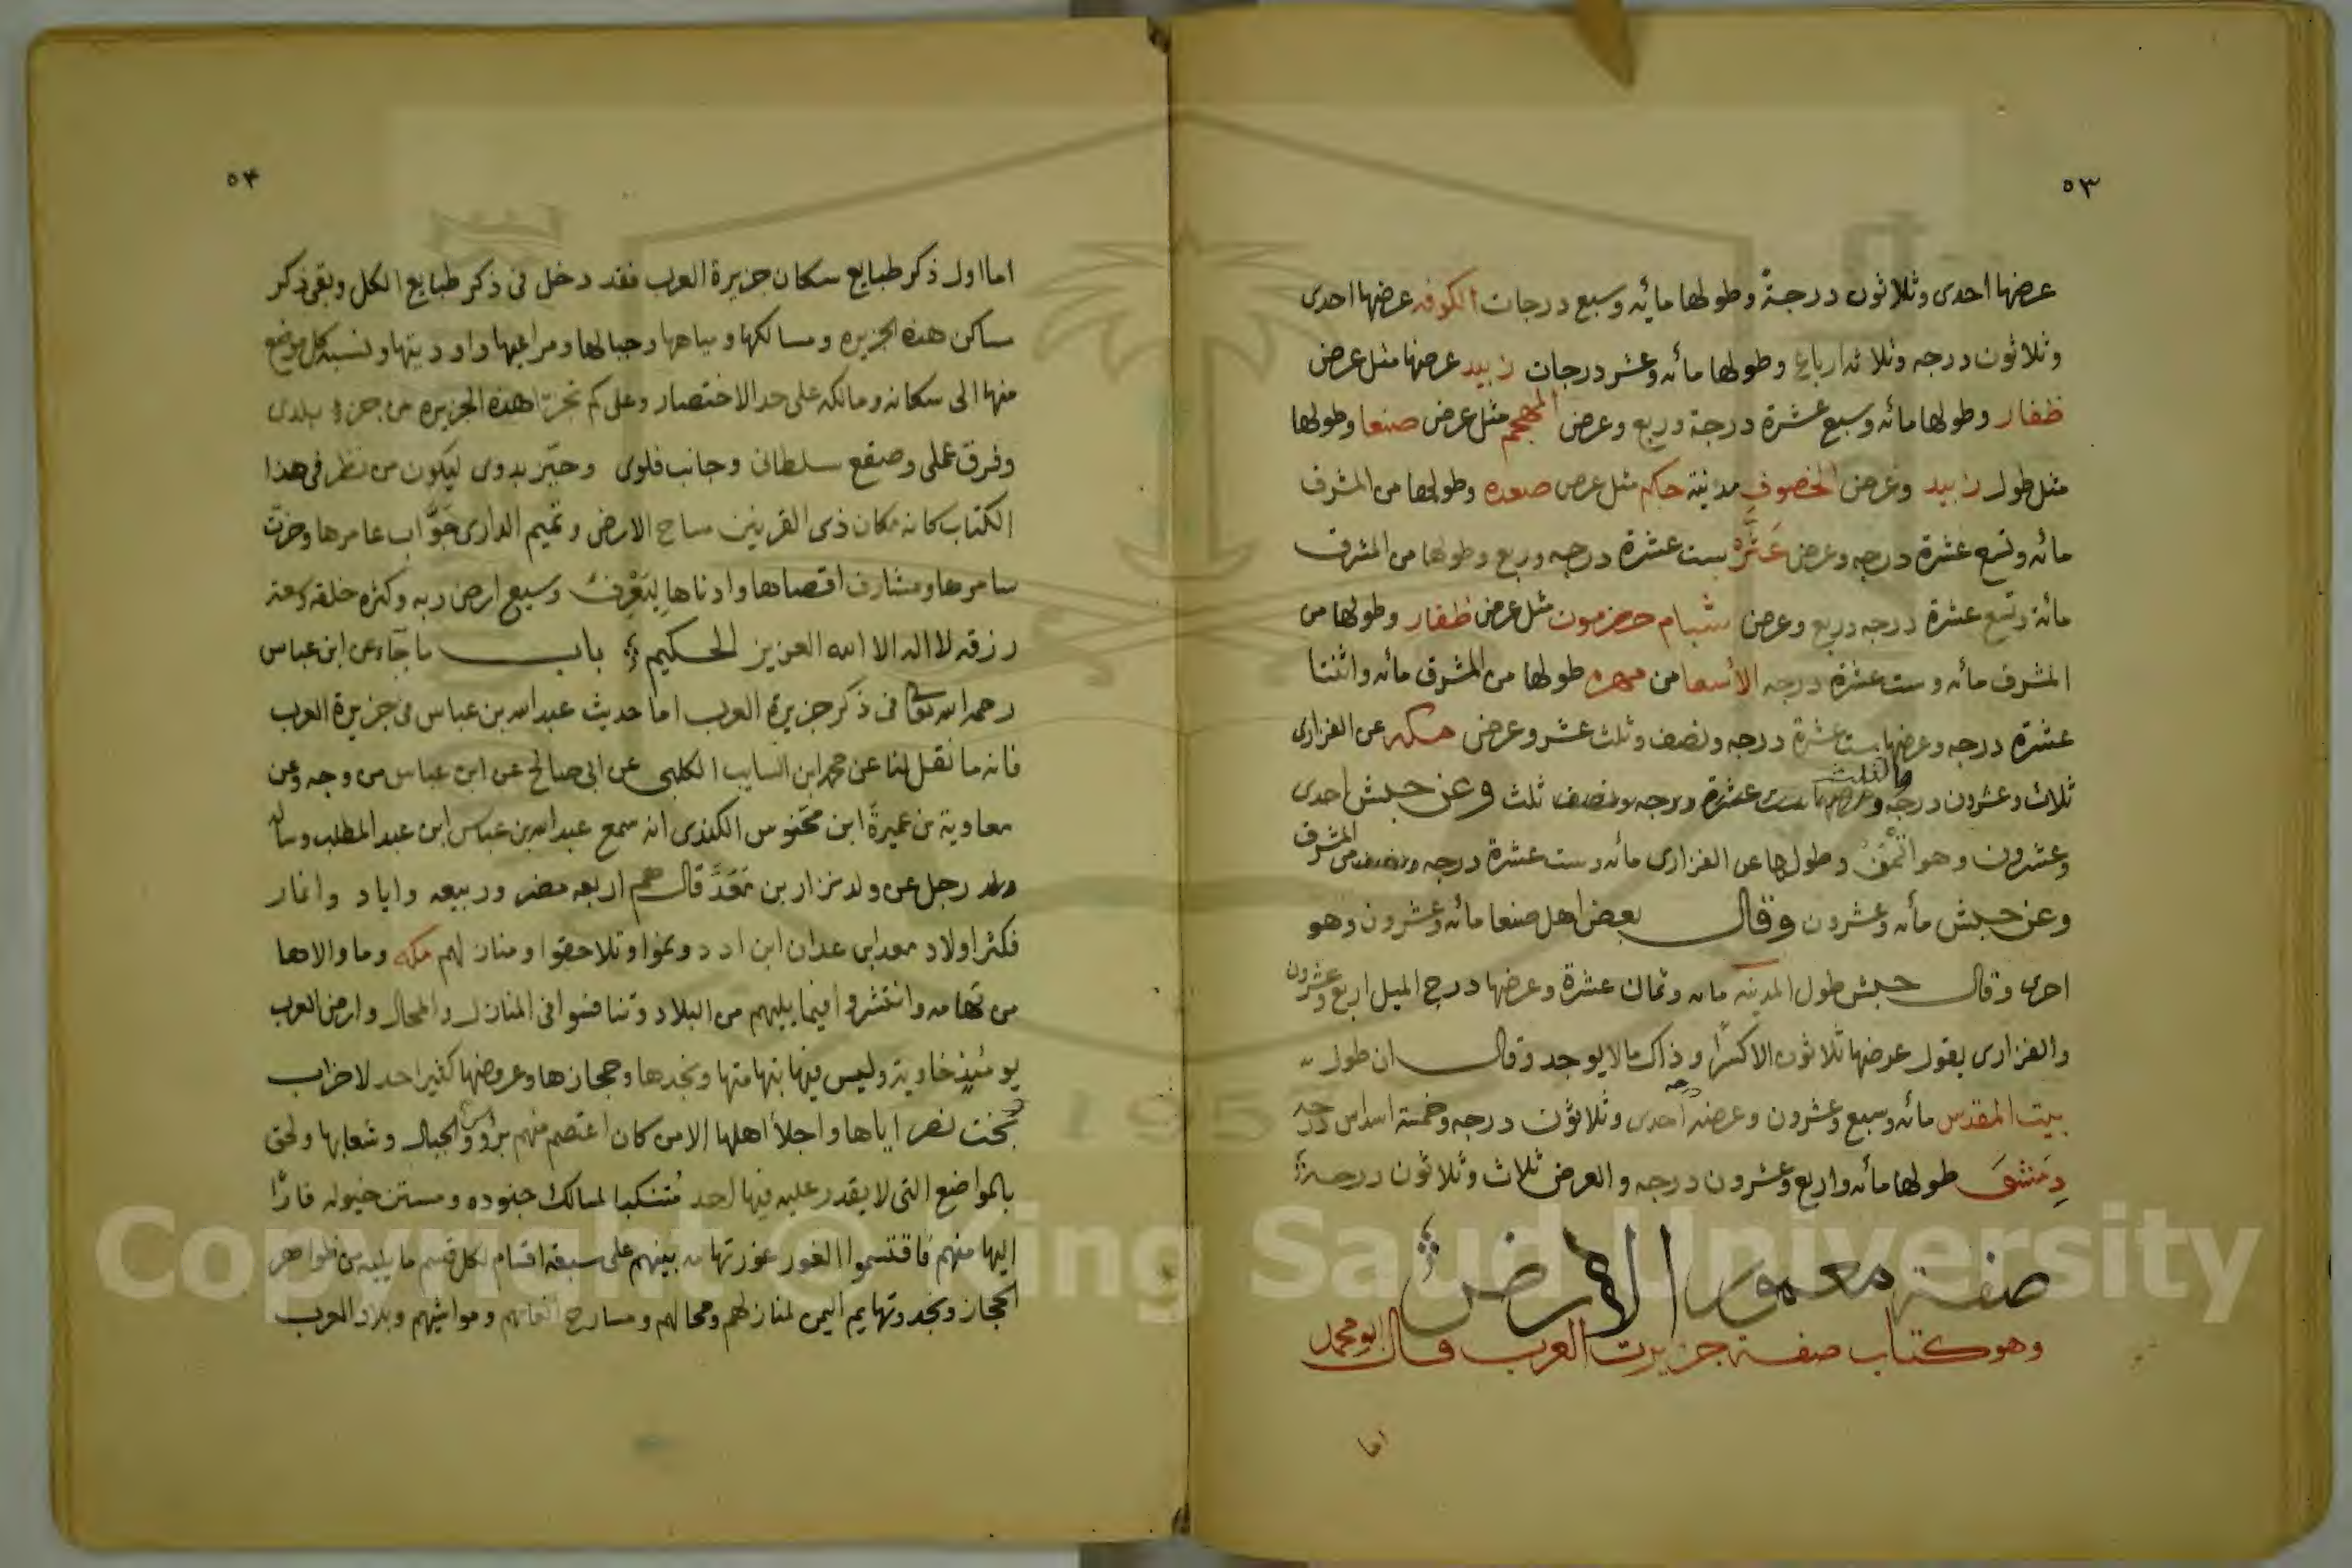 ٥٣
عرضها احدى وثلاثون درجة وطولها مائه وسبع درجات الكوفه عرضها احدى
وثلاثون درجه وثلاثه ارباع وطولها مائه وعشر درجات زبيد عرضها مثل عرض
ظفار وطولها مائه وسبع عشرة درجة وربع وعرض المهجم مثل عرض صنعا وطولها
مثل طول زبيد وعرض الخصوف مدينة حكم مثل عرض صعده وطولها من المشرق
مائه وتسع عشرة درجه وعرض عَثَّر ست عشرة درجه وربع وطولها من المشرق
مائة وتسع عشرة درجه وربع وعرض شبام حضرموت مثل عرض ظفار وطولها من
المشرق مائه وست عشرة درجه الأسعا من مهره طولها من المشرق مائه واثنتا
عشرة درجه وعرضها ست عشرة درجه ونصف وثلث عشر وعرض مكه عن الفزارى
ثلاث وعشرون درجه وعرضها ست عشرة درجه ونصف ثلث وعن حبش احدى
وعشرون وهو وطولها عن الفزارى مائه وست عشرة درجه ونصف من المشرق
وعن حبش مأنه وعشرون وقال بعض اهل صنعا مائه وعشرون وهو
احرى وقال حبش طول المدينه مائه وثمان عشرة وعرضها درج الميل اربع وعشرون
والفزارى يقول عرضها ثلاثون الا كسرًا وذاك مالا يوجد وقال ان طول
بيت المقدس مائه وسبع وعشرون وعرضه احدى وثلاثون درجه وخمسة اسداس درجه
دِمَشقَ طولها مأنه واربع وعشرون درجه والعرض ثلاث وثلاثون درجة
صفة معمور الارض
وهو كتاب صفة جزيرت العرب قال ابو محمد
اما
٥٤
اما اول ذكر طبايع سكان جزيرة العرب فقد دخل فى ذكر طبايع الكل وبقى ذكر
مساكن هذه الجزيره ومسالكها ومياهها وجبالها ومراعيها واوديتها ونسبة كل موضع
منها الى سكانه ومالكه على حد الاختصار وعلى كم تجزا هذه الجزيره من جزء بلدى
وفرق عملى وصقع سلطانى وجانب فلوى وحيّز بدوى ليكون من نظر فى هذا
الكتاب كانه مكان ذى القرنين مساح الارض وتميم الدارى جَوَّاب عامرها وخرّت
سامرها ومشارف اقصاها وادناها لِيَعْرِفَ وسيع ارض ربه وكثره خلقه وسعة
رزقه لا اله الا الله العزيز الحكيم باب ما جآء عن ابن عباس
رحمه الله تعالى فى ذكر جزيرة العرب اما حديث عبد الله بن عباس فى جزيرة العرب
فانه ما نقل لنا عن محمد ابن السايب الكلبى عن ابى صالح عن ابن عباس من وجه وعن
معاوية بن عميرة ابن مخوس الكندى انه سمع عبد الله بن عباس ابن عبد المطلب وساله
رجل عن ولد نزار بن مَعَدّ قال هم اربعه مضر وربيعه واياد وانمار
فكثر اولاد معد ابن عدان ابن ادد ونموا وتلاحقوا ومنازلهم مكه وما والاها
من تهامه وانتشروا فيما يليهم من البلاد وتنافسوا فى المنازل والمحال وارض العرب
يومئذٍ خاوية وليس فيها بتهامتها ونجدها وحجازها وعروضها كثير احد لاخراب
بخت نصر اياها واجلأ اهلها الا من كان اعتصم منهم برؤوس الجبال وشعابها ولحق
بالمواضع التى لا يقدر عليه فيها احد مُتنكبا لمسالك جنوده ومستن خيوله فارًا
اليها منهم فاقتسموا الغور غورتهامه بينهم على سبعة اقسام لكل قسم ما يليه من ظواهر
الحجاز ونجد وتهايم اليمن لمنازلهم ومحالهم ومسارح انعامهم ومواشيهم وبلاد العرب
Copyright © King Saud University
195